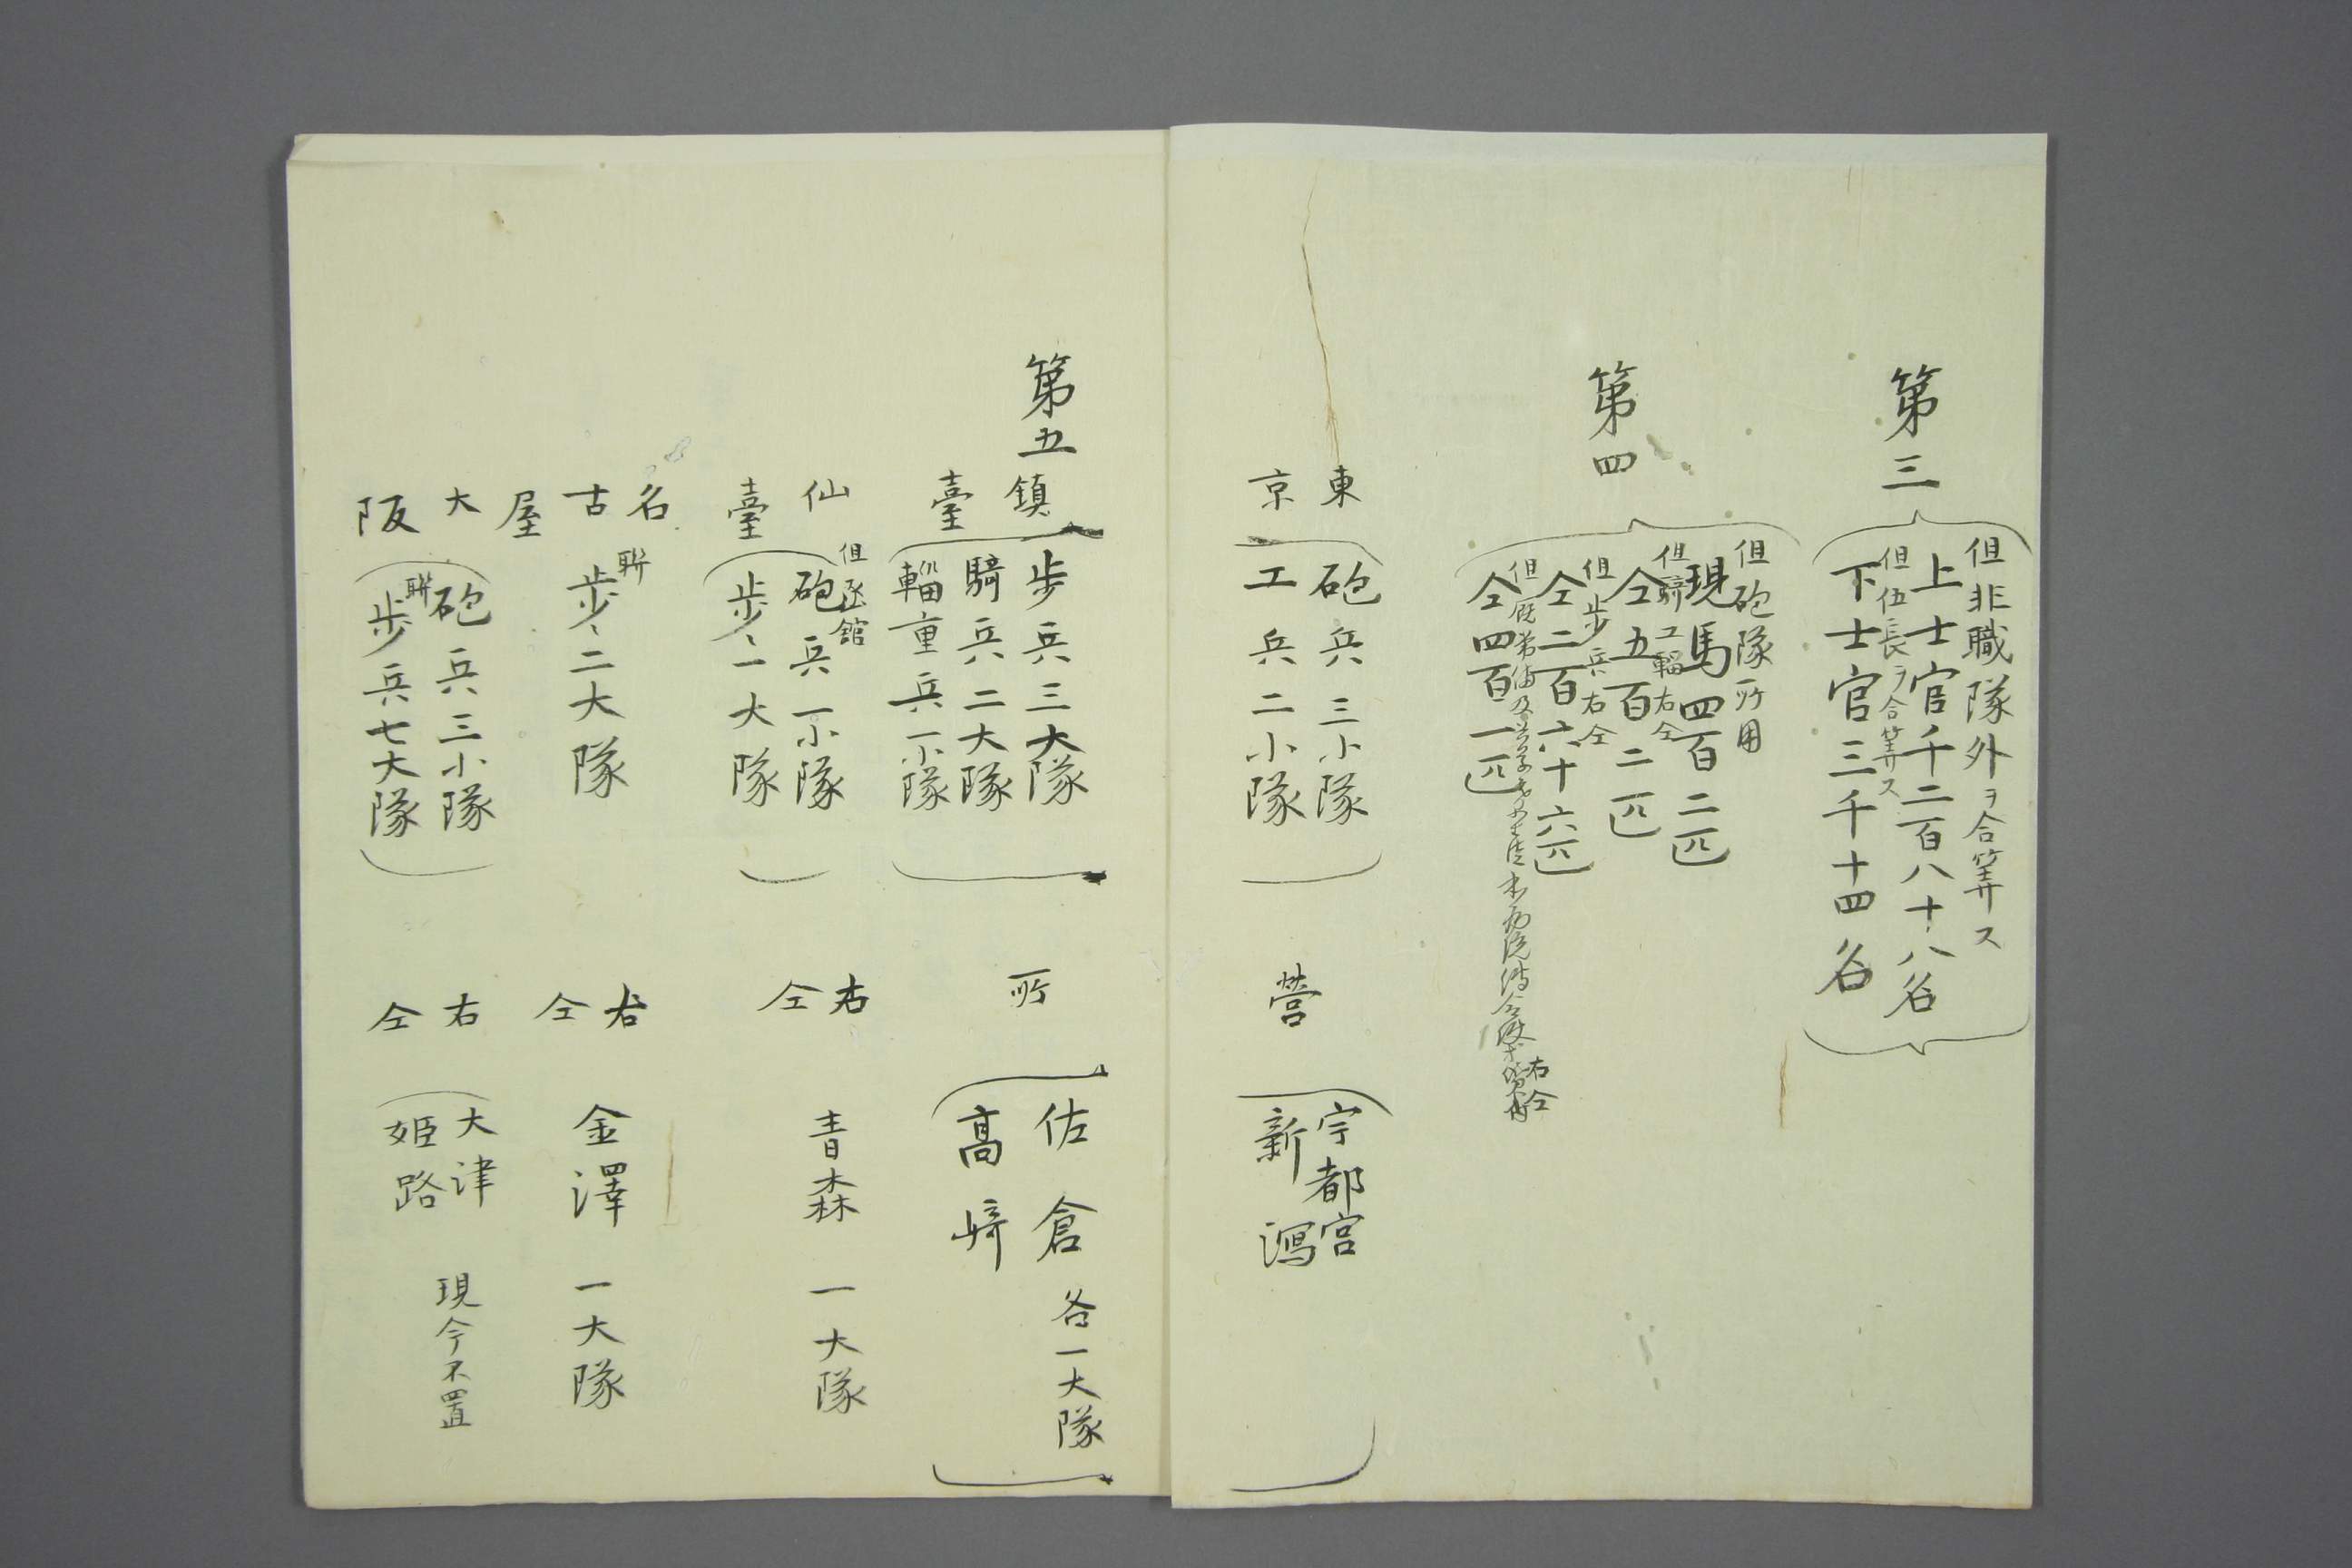 第三
但非職隊外ヲ合筭ス
上士官千二百八十八名
但伍長ヲ合筭ス
下士官三千十四名
第四
但砲隊所用
現馬四百二匹
但騎工輜右仝
仝五百二匹
但歩兵右仝
仝二百六十六匹
仝四百一匹
右仝
東京
砲兵三小隊
工兵二小隊
營
宇都宮
新潟
第五
鎮臺
歩兵三大隊
騎兵二大隊
輜重兵一小隊
所
佐倉
高崎
各一大隊
仙臺
但函館
砲兵一小隊
歩〻一大隊
右仝
青森
一大隊
名古屋
聨
歩〻二大隊
右仝
金澤
一大隊
大阪
砲兵三小隊
聨
歩兵七大隊
右仝
大津
姫路
現今不置